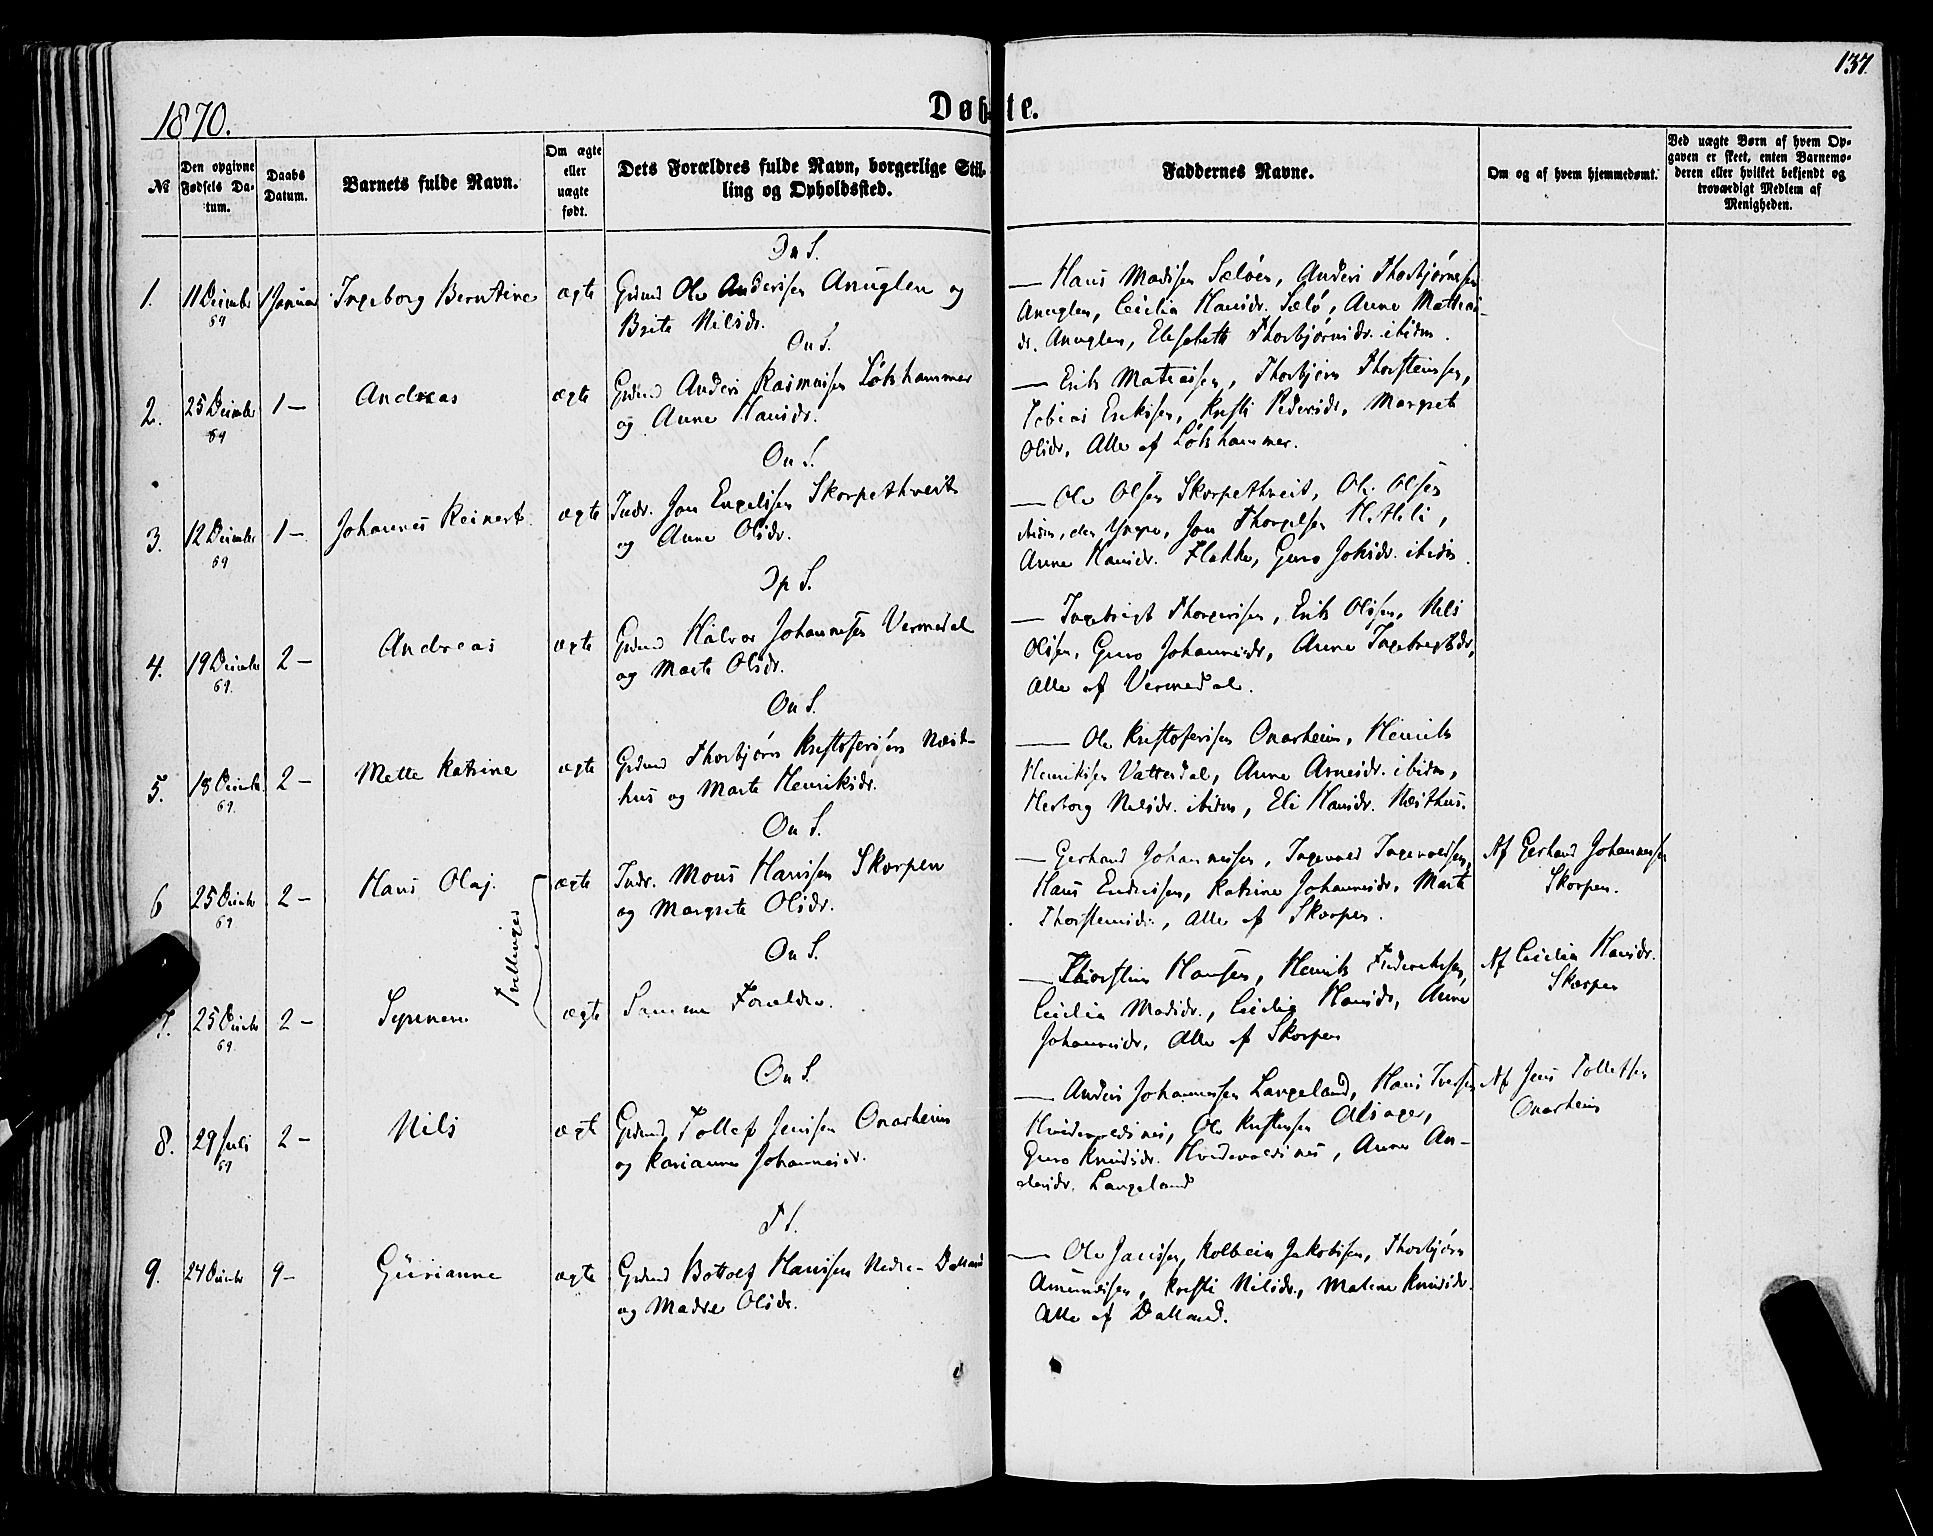 137.
1870.
Døbte.
№
Den opgivne Fødsels Datum.
Daabs Datum.
Barnets fulde Navn.
Om ægte eller uægte født.
Dets Forældres fulde Navn, borgerlige Stilling og Opholdssted.
Faddernes Navne.
Om og af hvem hjemmedøbt.
Ved uægte Børn af hvem Opgaven er skeet, enten Barnemoderen eller hvilket bekjendt og troværdigt Medlem af Menigheden.
On S.
1. 11 Decembr 69 1 Januar Ingeborg Berntine ægte Grdmd Ole Andersen Anuglen og
Brite Nilsdr.
— Hans Madsen Seløen, Anders Thorbjørnsen
Anuglen, Cecilia Hansdr. Selø, Anne Mattias-
dr. Anuglen, Elisabeth Thorbjørnsdr. ibidm.
On S.
2. 25 Decembr 69 1 — Andreas ægte Grdmd Anders Rasmusen Løkhammer
og Anne Hansdr.
— Erik Matiassen, Thorbjørn Thorsteinsen,
Tobias Eriksen, Kristi Pedersdr, Margrete
Olsdr, Alle af Løkhammer.
On S.
3. 12 Decembr 69 1 — Johannes Reinert ægte Indr. Jon Engelsen Skorpethveit
og Anne Olsdr.
— Ole Olsen Skorpethveit, Ole Olsen
ibidm, den Yngre, Jon
Anne Hansdr. Flakke, Guro Johsdr. ibidm.
Op S.
4. 19 Decembr 69. 2 — Andreas ægte Grdmd Halvor Johannesen Vermedal
og Marte Olsdr.
— Ingebrigt Thorgersen, Erik Olsen, Nils
Olsen, Guro Johannesdr, Anne Ingebrigtsdr,
Alle af Vermedal.
On S.
5. 18 Decembr. 69. 2 — Mette Katrine ægte Grdmd Thorbjørn Kristofersen Næst-
hus og Marte Henriksdr.
— Ole Kristofersen Onarheim, Henrik
Henriksen Vatterdal, Anne Arnesdr. ibidm,
Herborg Nilsdr. ibidm, Eli Hansdr. Næsthus.
On S.
6 25 Decembr 69 2 — Hans Olaj. ægte Indr. Mons Hansen Skorpen
og Margrete Olsdr.
— Gerhard Johannessen, Ingevald Ingevaldsen,
Hans Endresen, Katrine Johannesdr, Marte
Thorsteinsdr., alle af Skorpen.
Af Gerhard Johannessen
Skorpen.
Tvillinger
On S.
7. 25 Decembr 69. 2 — Synneve ægte Samme Forældre.
— Thorstein Hansen, Henrik Frederiksen,
Cecilia Madsdr., Cecilia Hansdr, Anne
Johannesdr, Alle af Skorpen
Af Cecilia Hansdr.
Skorpen
On S.
8. 29 Juli 69 2 — Nils ægt Grdmd Tollef Jensen Onarheim
og Karianne Johannesdr.
— Anders Johannessen Langeland, Hans Iversen
Hvidevoldsnes, Ole Kristensen Alsager,
Guro Knudsdr. Hvidevoldsnes, Anne An-
dersdr. Langeland
Af Jens Tollefsen
Onarheim
T S.
9. 24 Decembr 9 — Gurianne ægte Grdmd Botolf Hansen Nedre-Dalland
og Madre Olsdr.
— Ole Jansen, Kolbein Jakobsen, Thorbjørn
Amundsen, Kristi Nilsdr., Malene Knudsdr.
Alle af Dalland.